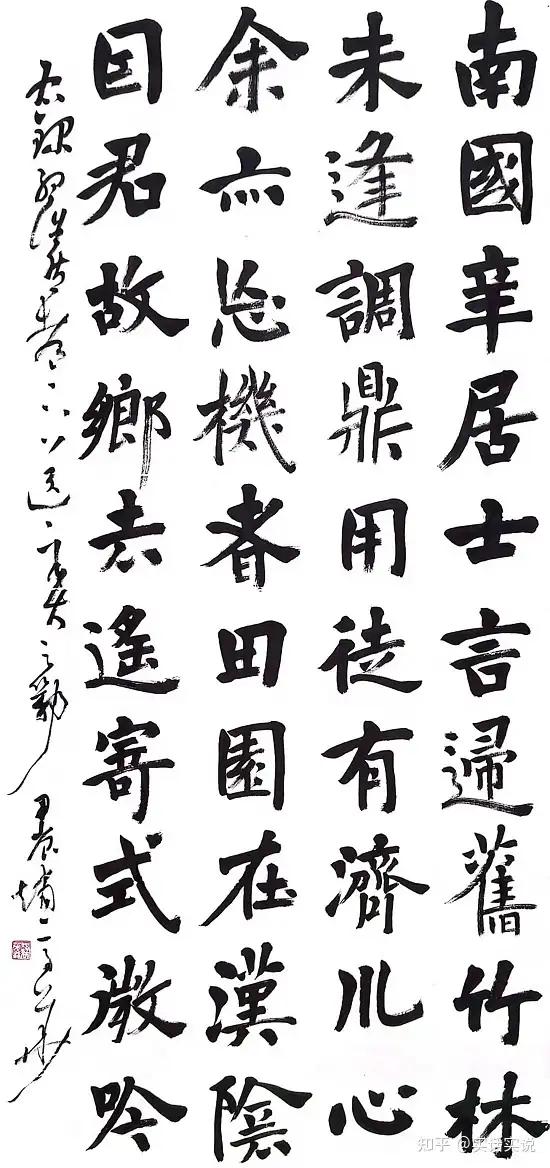 南國辛居士言歸舊竹林
未逢調鼎用徒有濟川心
余亦忘機者田園在漢陰
因君故鄉去遙寄式微吟
右錄孟浩然送辛大之鄂
知乎 @实话实说